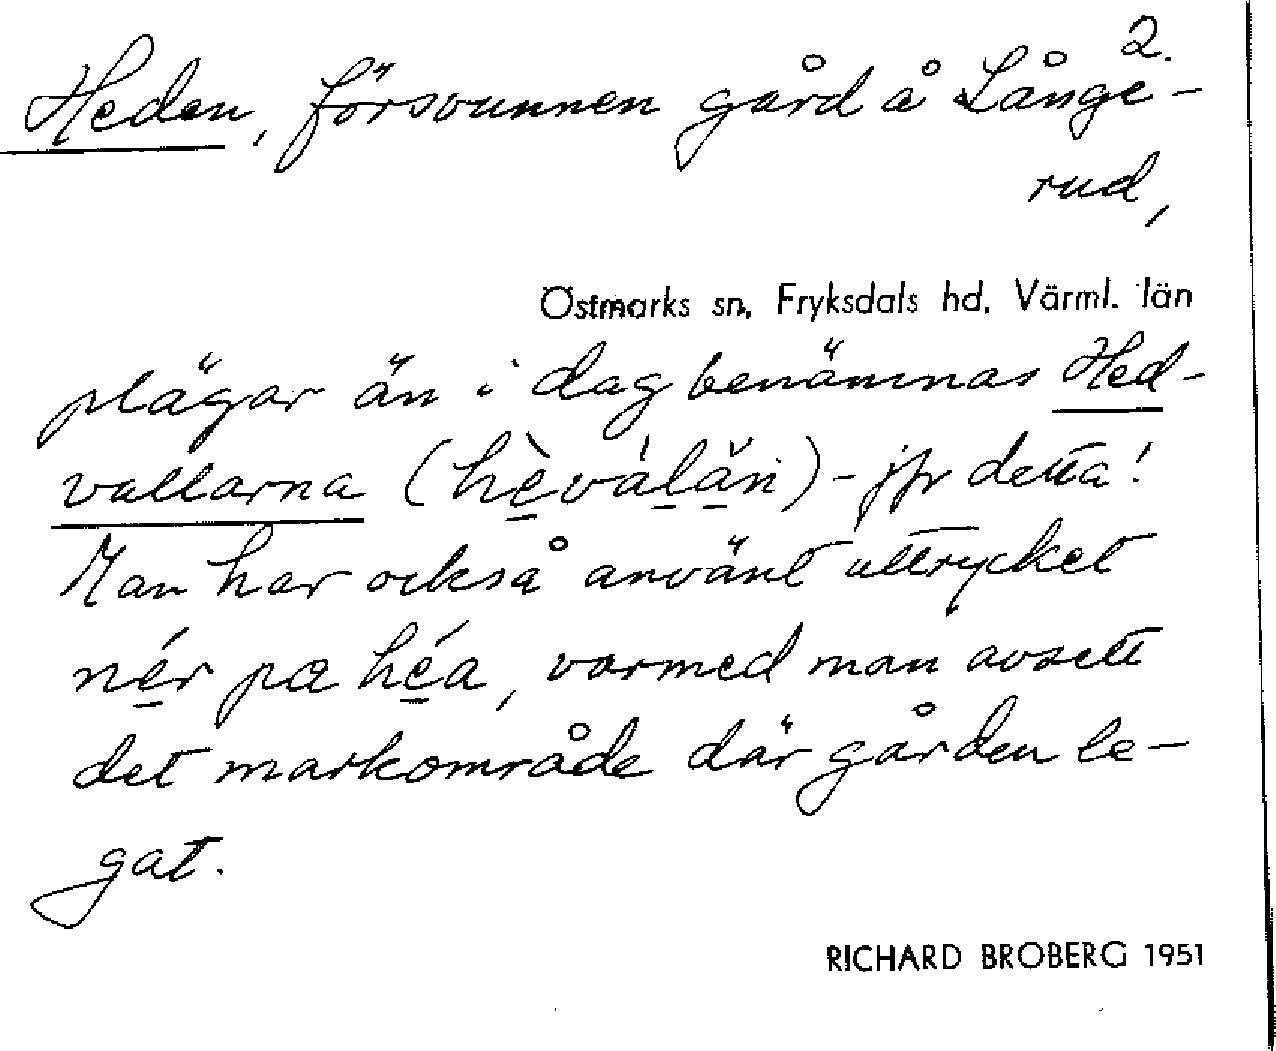 2.
Heden, försvunnen gård å Långe-
rud,
Östmarks sn, Fryksdals hd, Värml. län
plägar än i dag benämnas Hed-
vallarna (hèválăn) - jfr detta!
Man har också använt uttrycket
nér pæ héa, varmed man avsett
det markområde där gården le-
gat.
RICHARD BROBERG 1951